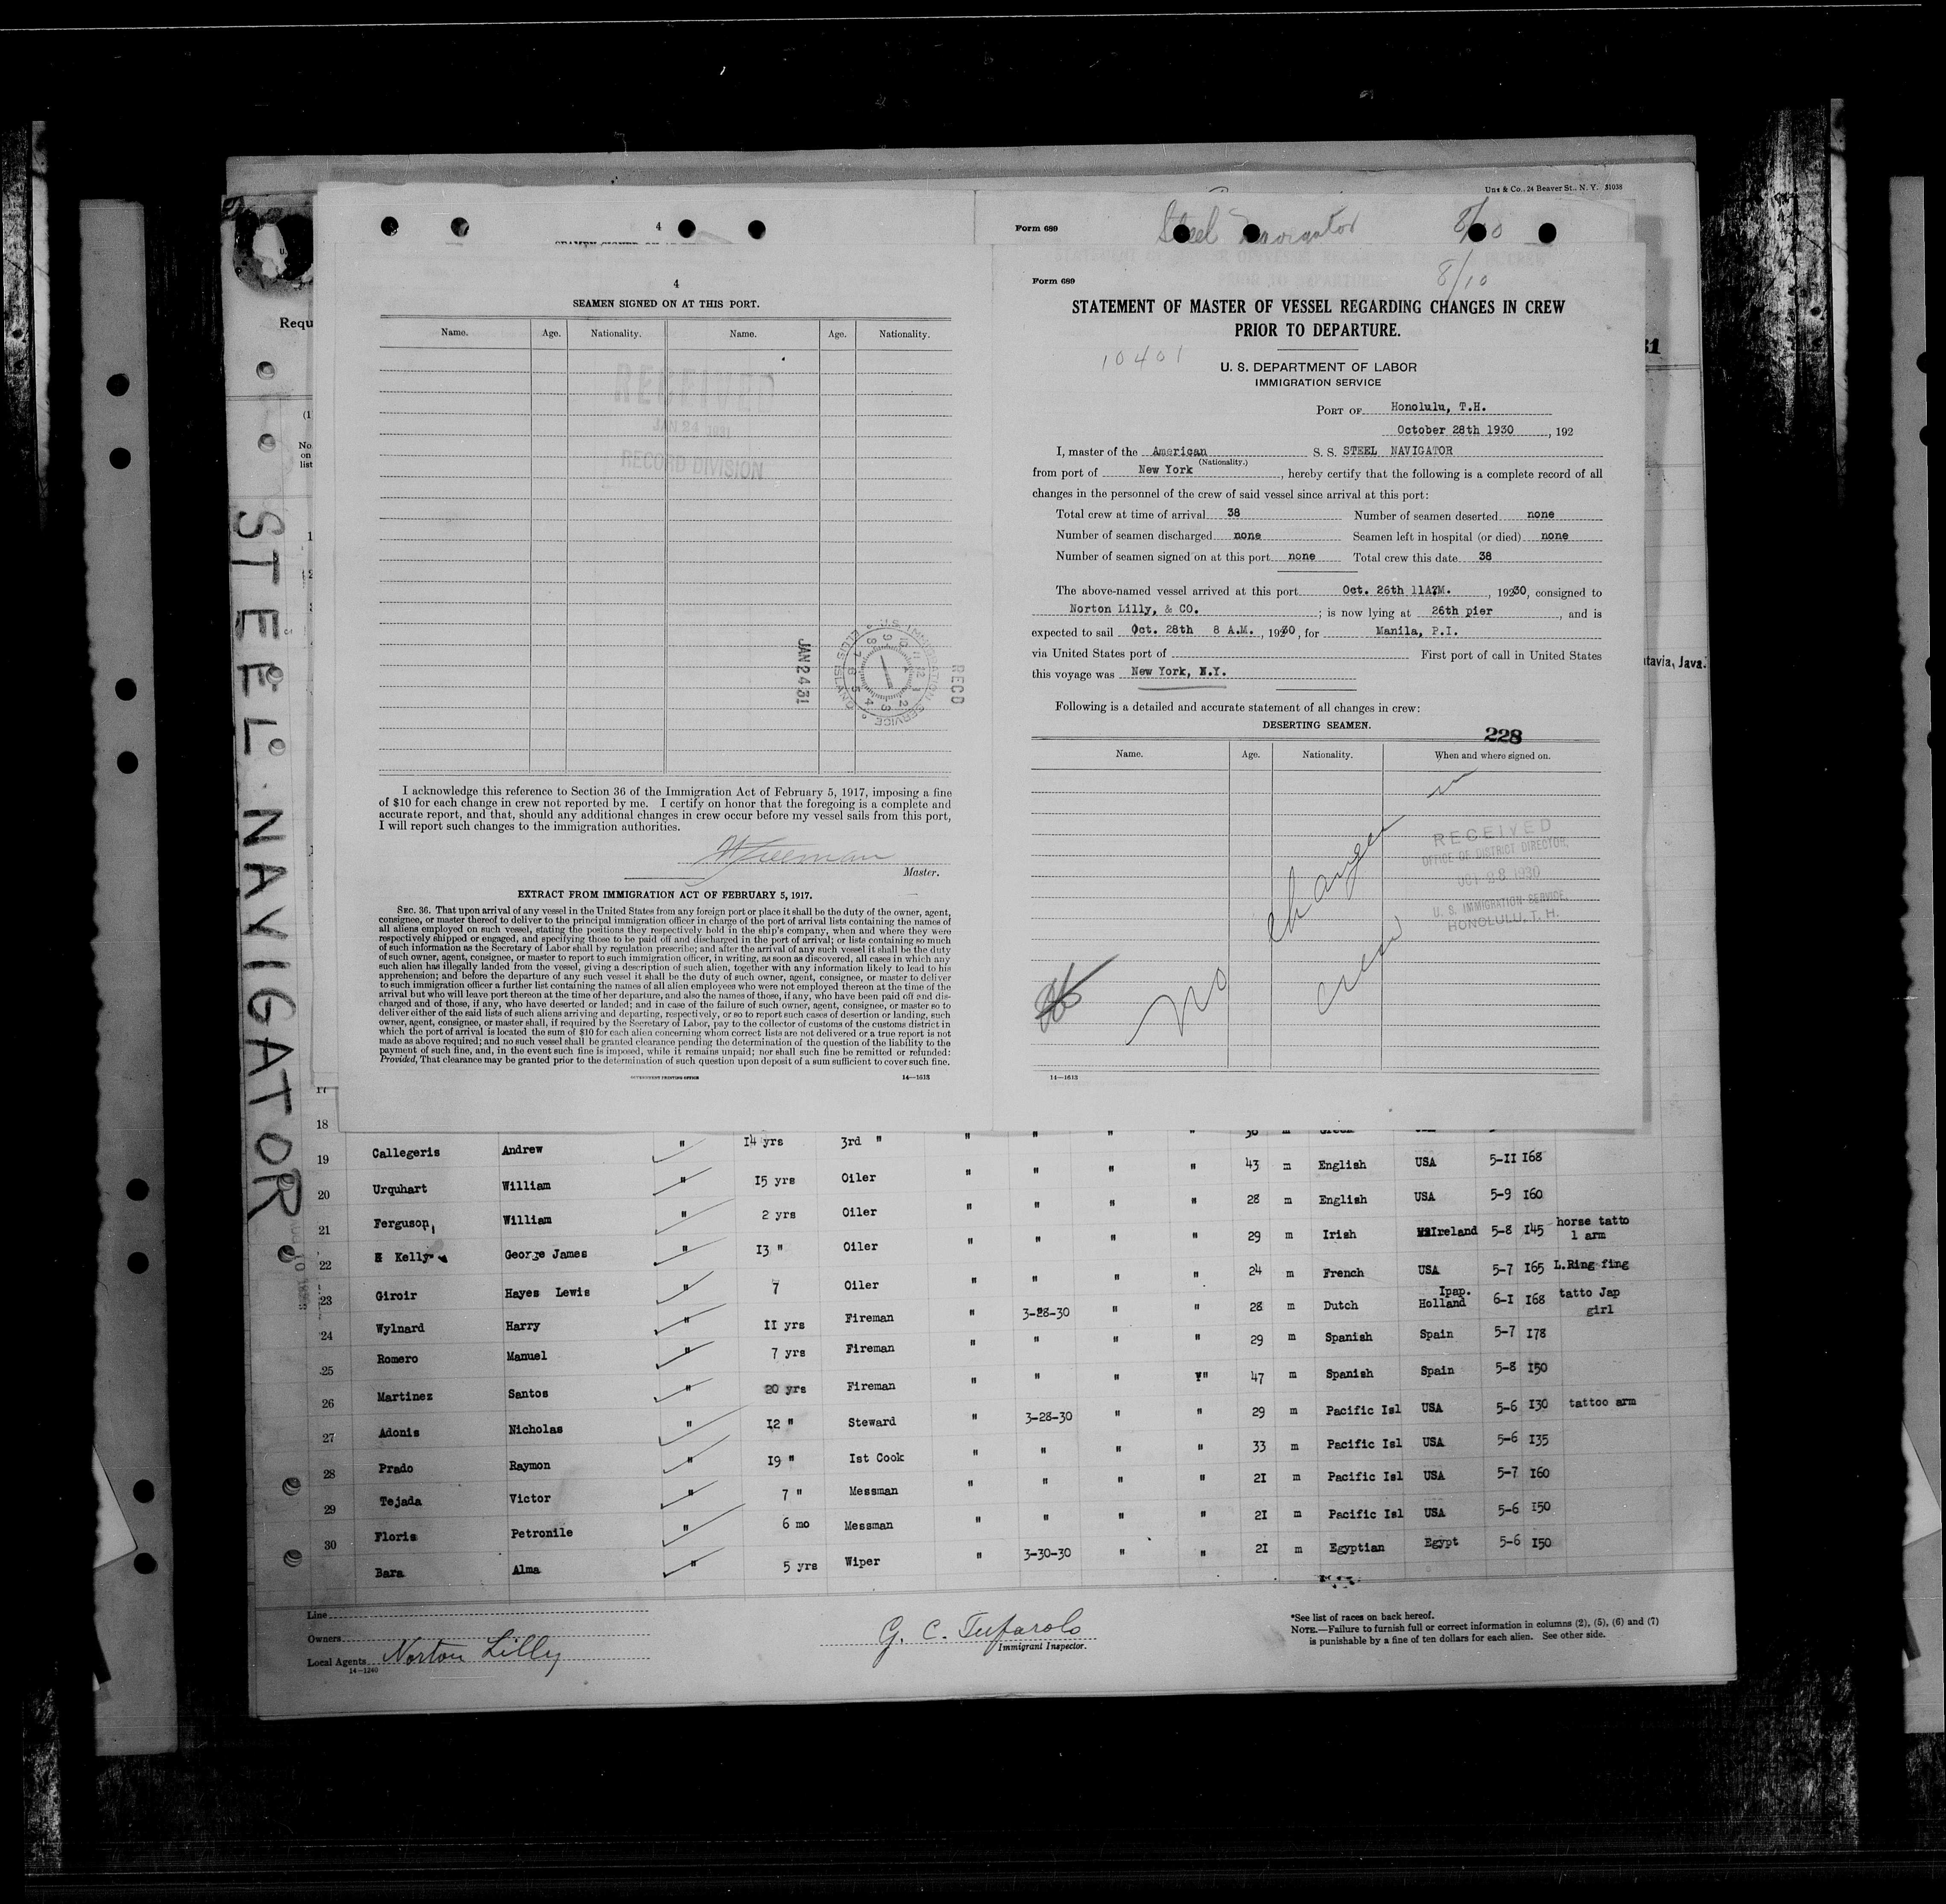 Uns & Co., 24 Beaver St., N. Y. 31038
4
Form 689
Steel Navigator
8/10
Requ
STEEL NAVIGATOR
4
SEAMEN SIGNED ON AT THIS PORT.
Name. Age. Nationality. Name. Age. Nationality.
RECEIVED
JAN 24 1931
RECORD DIVISION
JAN 24 31
U. S. IMMIGRATION SERVICE
ELLIS ISLAND
RECD
I acknowledge this reference to Section 36 of the Immigration Act of February 5, 1917, imposing a fine
of $10 for each change in crew not reported by me. I certify on honor that the foregoing is a complete and
accurate report, and that, should any additional changes in crew occur before my vessel sails from this port,
I will report such changes to the immigration authorities.
Master.
EXTRACT FROM IMMIGRATION ACT OF FEBRUARY 5, 1917.
SEC. 36. That upon arrival of any vessel in the United States from any foreign port or place it shall be the duty of the owner, agent,
consignee, or master thereof to deliver to the principal immigration officer in charge of the port of arrival lists containing the names of
all aliens employed on such vessel, stating the positions they respectively hold in the ship's company, when and where they were
respectively shipped or engaged, and specifying those to be paid off and discharged in the port of arrival; or lists containing so much
of such information as the Secretary of Labor shall by regulation prescribe; and after the arrival of any such vessel it shall be the duty
of such owner, agent, consignee, or master to report to such immigration officer, in writing, as soon as discovered, all cases in which any
such alien has illegally landed from the vessel, giving a description of such alien, together with any information likely to lead to his
apprehension; and before the departure of any such vessel it shall be the duty of such owner, agent, consignee, or master to deliver
to such immigration officer a further list containing the names of all alien employees who were not employed thereon at the time of the
arrival but who will leave port thereon at the time of her departure, and also the names of those, if any, who have been paid off and dis-
charged and of those, if any, who have deserted or landed; and in case of the failure of such owner, agent, consignee, or master so to
deliver either of the said lists of such aliens arriving and departing, respectively, or so to report such cases of desertion or landing, such
owner, agent, consignee, or master shall, if required by the Secretary of Labor, pay to the collector of customs of the customs district in
which the port of arrival is located the sum of $10 for each alien concerning whom correct lists are not delivered or a true report is not
made as above required; and no such vessel shall be granted clearance pending the determination of the question of the liability to the
payment of such fine, and, in the event such fine is imposed, while it remains unpaid; nor shall such fine be remitted or refunded:
Provided, That clearance may be granted prior to the determination of such question upon deposit of a sum sufficient to cover such fine.
GOVERNMENT PRINTING OFFICE 14—1613
Form 689
8/10
STATEMENT OF MASTER OF VESSEL REGARDING CHANGES IN CREW
PRIOR TO DEPARTURE.
10401
U. S. DEPARTMENT OF LABOR
IMMIGRATION SERVICE
PORT OF Honolulu, T.H.
October 28th 1930, 192
I, master of the American S. S. STEEL NAVIGATOR
(Nationality.)
from port of New York, hereby certify that the following is a complete record of all
changes in the personnel of the crew of said vessel since arrival at this port:
Total crew at time of arrival 38 Number of seamen deserted none
Number of seamen discharged none Seamen left in hospital (or died) none
Number of seamen signed on at this port none Total crew this date 38
The above-named vessel arrived at this port Oct. 26th 11A7M., 19230, consigned to
Norton Lilly, & CO.; is now lying at 26th pier, and is
expected to sail Oct. 28th 8 A.M., 19230, for Manila, P.I.
via United States port of First port of call in United States
this voyage was New York, N.Y.
Following is a detailed and accurate statement of all changes in crew:
DESERTING SEAMEN.
228
Name. Age. Nationality. When and where signed on.
no changes in crew
RECEIVED
OFFICE OF DISTRICT DIRECTOR,
OCT 28 1930
U. S. IMMIGRATION SERVICE,
HONOLULU, T. H.
14—1613
31
tavia, Java.
17
18
Callegeris Andrew " 14 yrs 3rd " " " " "
19 Urquhart William " 15 yrs Oiler " " " " 43 m English USA 5-11 168
20 Ferguson William " 2 yrs Oiler " " " " 28 m English USA 5-9 160
21 Kelly George James " 13 " Oiler " " " " 29 m Irish Ireland 5-8 145 horse tatto l arm
22 Giroir Hayes Lewis " 7 Oiler " " " " 24 m French USA 5-7 165 L.Ring fing
23 Wylnard Harry " 11 yrs Fireman " 3-28-30 " " 28 m Dutch Ipap. Holland 6-1 168 tatto Jap girl
24 Romero Manuel " 7 yrs Fireman " " " " 29 m Spanish Spain 5-7 178
25 Martinez Santos " 20 yrs Fireman " " " " 47 m Spanish Spain 5-8 150
26 Adonis Nicholas " 12 " Steward " 3-28-30 " " 29 m Pacific Isl USA 5-6 130 tattoo arm
27 Prado Raymon " 19 " 1st Cook " " " " 33 m Pacific Isl USA 5-6 135
28 Tejada Victor " 7 " Messman " " " " 21 m Pacific Isl USA 5-7 160
29 Floris Petronile " 6 mo Messman " " " " 21 m Pacific Isl USA 5-6 150
30 Bara Alma " 5 yrs Wiper " 3-30-30 " " 21 m Egyptian Egypt 5-6 150
Line
Owners
Local Agents Norton Lilly
14—1240
G. C. Tufarolo
Immigrant Inspector.
*See list of races on back hereof.
NOTE.—Failure to furnish full or correct information in columns (2), (5), (6) and (7)
is punishable by a fine of ten dollars for each alien. See other side.